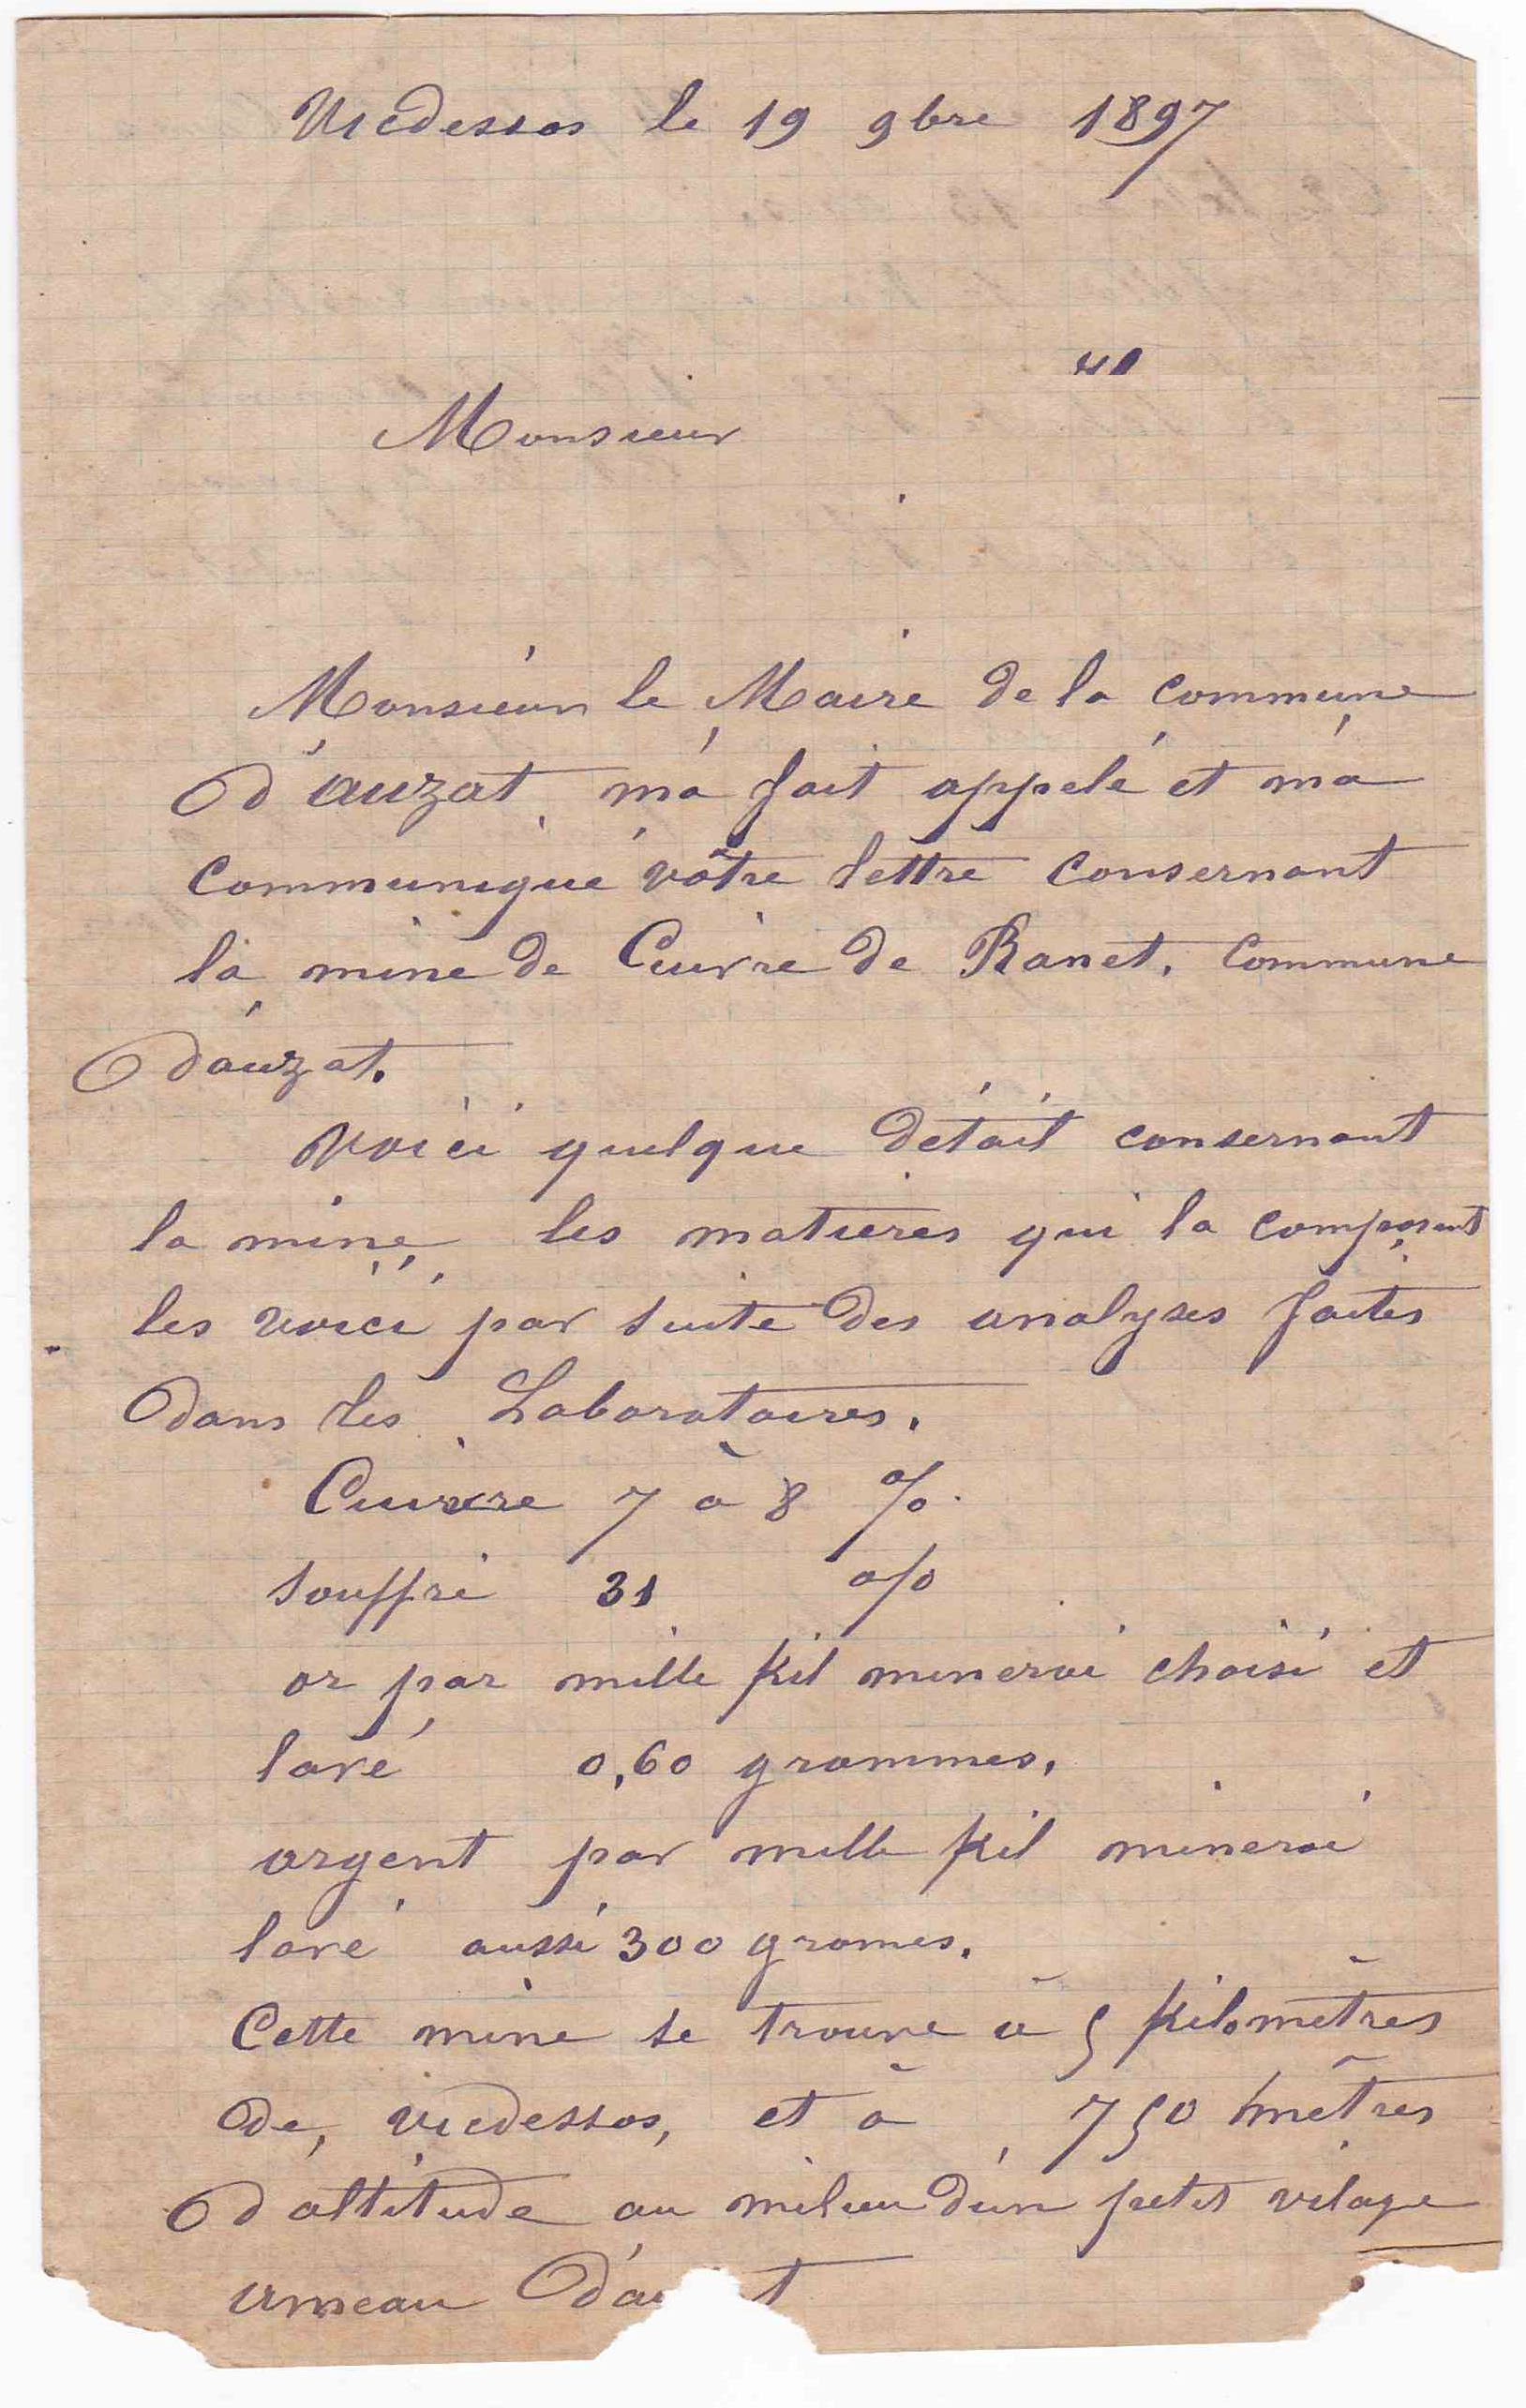 Vicdessos le 19 9bre 1897
Monsieur
Monsieur le Maire de la commune
d'auzat m'a fait appelé et m'a
communiqué vôtre lettre consernant
la mine de Cuivre de Ranet. Commune
d'auzat.
Voici quelque détail consernant
la mine, les matières qui la composent
les voici, par suite des analyses faites
dans les Laboratoires.
Cuivre 7 à 8 %
souffre 31 %
or par mille kil minerai choisi et
lavé 0,60 grammes,
argent par mille kil minerai
lavé aussi 300 grames.
Cette mine se trouve à 5 kilomètres
de, vicdessos, et à 750 mètres
d'altitude au milieu d'un petit vilage
ameau d'au t